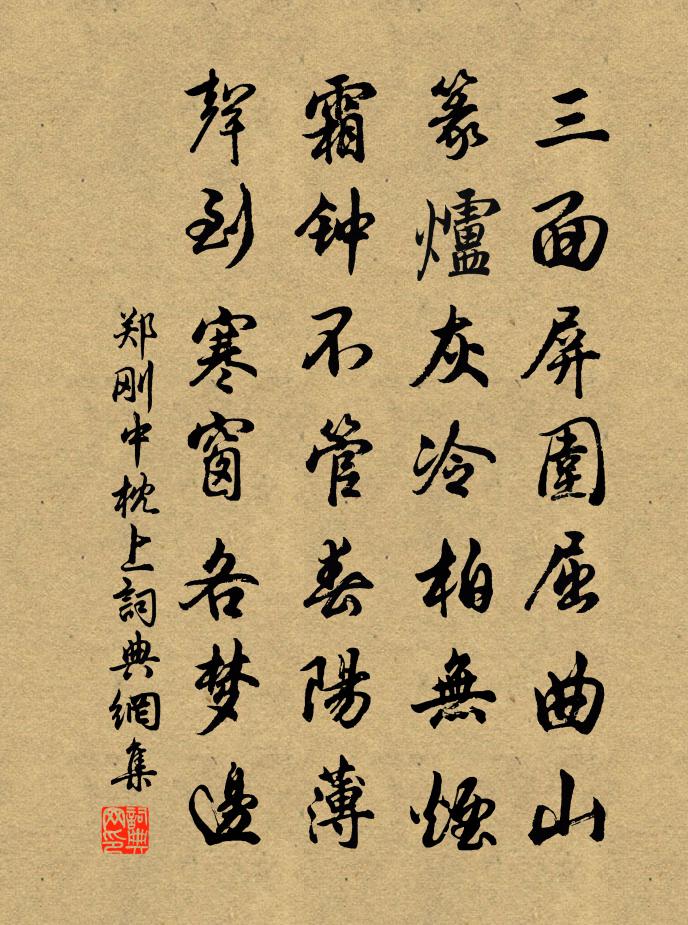 三面屏圍屈曲山
篆爐灰冷柏無煙
霜钟不管春陽薄
聲到寒窗各梦邊
郑刚中枕上詞典網集
詞典网印